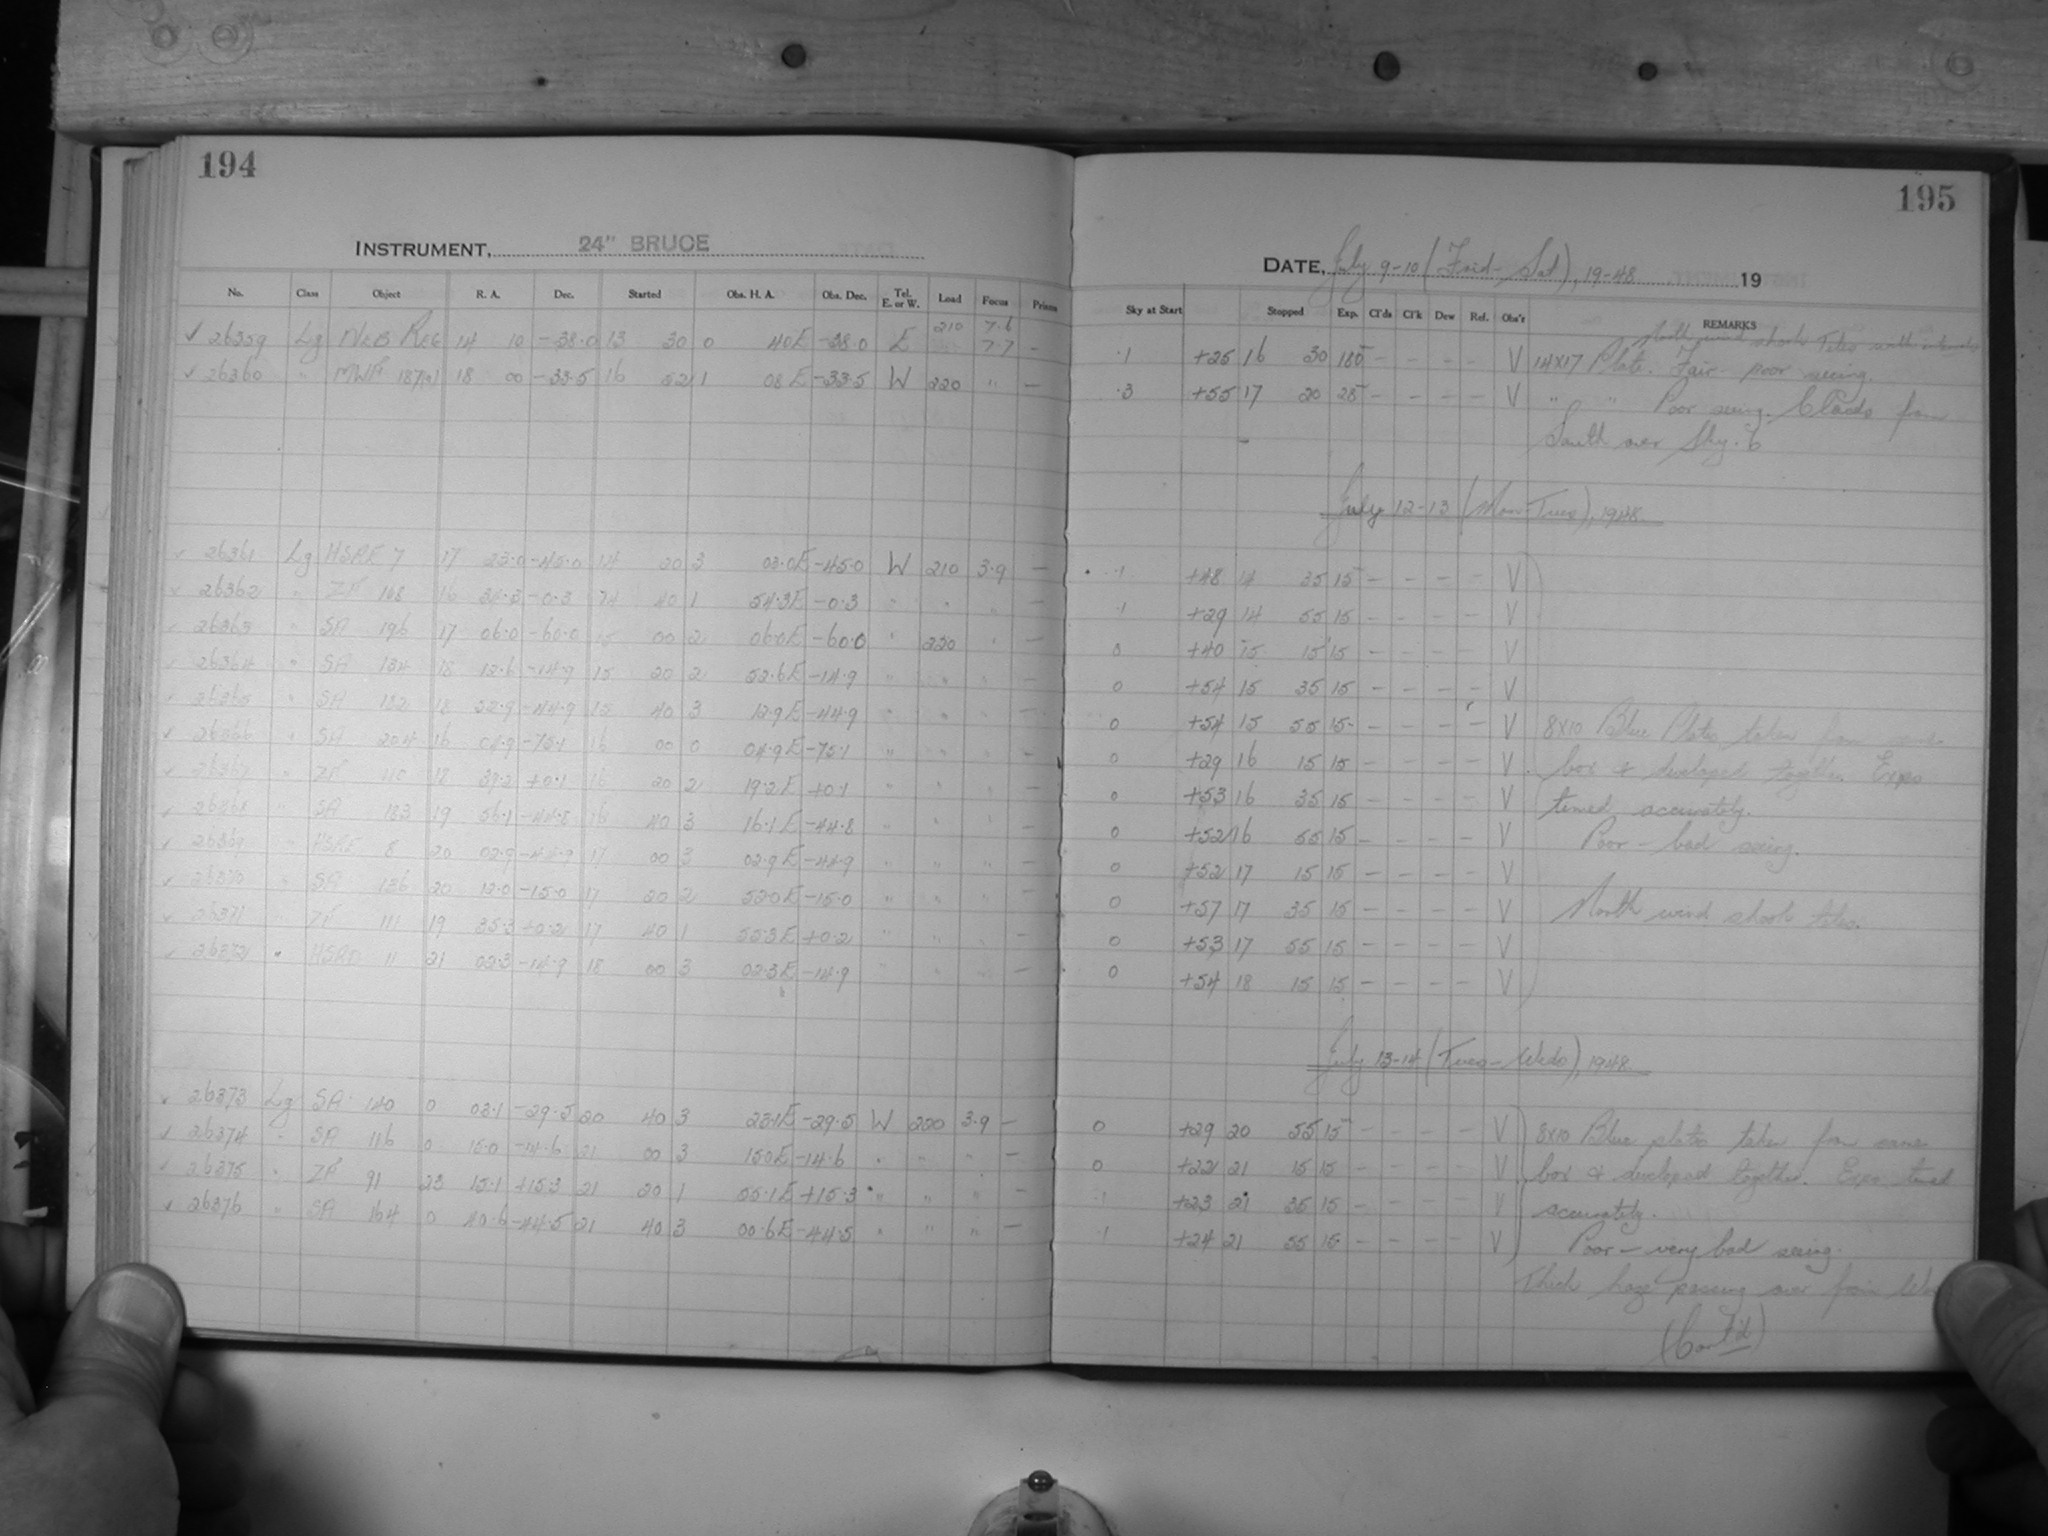 194
INSTRUMENT, 24" BRUCE
No. Class Object R. A. Dec. Started Obs. H. A. Obs. Dec. Tel. E. or W. Load Focus
26359 Lg Neb Reg 14 10 -38.0 13 30 0 40E -38.0 E 210 7.6 7.7 -
26360 " MWF 187 18 00 -33.5 16 52 1 08E -33.5 W 220 " -
26361 Lg HSRF 7 17 23.0 -45.0 14 20 3 03.0E -45.0 W 210 3.9 -
26362 " ZF 168 16 34.3 -0.3 14 40 1 54.3E -0.3 " " " -
26363 " SA 196 17 06.0 -60.0 15 00 2 06.0E -60.0 " 220 " -
26364 " SA 134 18 12.6 -14.9 15 20 2 52.6E -14.9 " " " -
26365 " SA 182 18 52.9 -44.9 15 40 3 12.9E -44.9 " " " -
26366 " SA 204 16 04.9 -75.1 16 00 0 04.9E -75.1 " " " -
26367 " ZF 110 18 39.2 +0.1 16 20 2 19.2E +0.1 " " " -
26368 " SA 183 19 56.1 -44.8 16 40 3 16.1E -44.8 " " " -
26369 " HSRF 8 20 02.9 -44.9 17 00 3 02.9E -44.9 " " " -
26370 " SA 136 20 12.0 -15.0 17 20 2 52.0E -15.0 " " " -
26371 " ZF 111 19 35.3 +0.2 17 40 1 55.3E +0.2 " " " -
26372 " 11 21 02.3 -14.9 18 00 3 02.3E -14.9 " " " -
26373 Lg SA 140 0 03.1 -29.5 20 40 3 23.1E -29.5 W 220 3.9 -
26374 " SA 116 0 15.0 -14.6 21 00 3 15.0E -14.6 " " " -
26375 " ZF 91 23 15.1 +15.3 21 20 1 55.1E +15.3 " " " -
26376 " SA 164 0 40.6 -44.5 21 40 3 00.6E -44.5 " " " -
195
DATE, July 9-10 (Frid-Sat), 19-48 19
Sky at Start Stopped Exp. Cl'ds Cl'k Dew Ref. Obs'r REMARKS
North wind shook Teles with intervals
.1 +25 16 30 180 - - - - V 14x17 Plate. Fair - poor seeing.
.3 +55 17 20 28 - - - - V " " Poor seeing. Clouds from
South over Sky .6
July 12-13 (Mon-Tues), 1948.
.1 +48 14 35 15 - - - - V
.1 +29 14 55 15 - - - - V
0 +40 15 15 15 - - - - V
0 +54 15 35 15 - - - - V
0 +54 15 55 15 - - - - V 8x10 Blue Plates taken from same
0 +29 16 15 15 - - - - V box & developed together. Expo
0 +53 16 35 15 - - - - V timed accurately.
0 +52 16 55 15 - - - - V Poor - bad seeing.
0 +52 17 15 15 - - - - V
0 +57 17 35 15 - - - - V North wind shook teles.
0 +53 17 55 15 - - - - V
0 +54 18 15 15 - - - - V
July 13-14 (Tues-Weds), 1948.
0 +29 20 55 15 - - - - V 8x10 Blue plates taken from same
0 +22 21 15 15 - - - - V box & developed together. Expo timed
.1 +23 21 35 15 - - - - V accurately.
.1 +24 21 55 15 - - - - V Poor - very bad seeing.
Thick haze passing over from
(Cont'd)